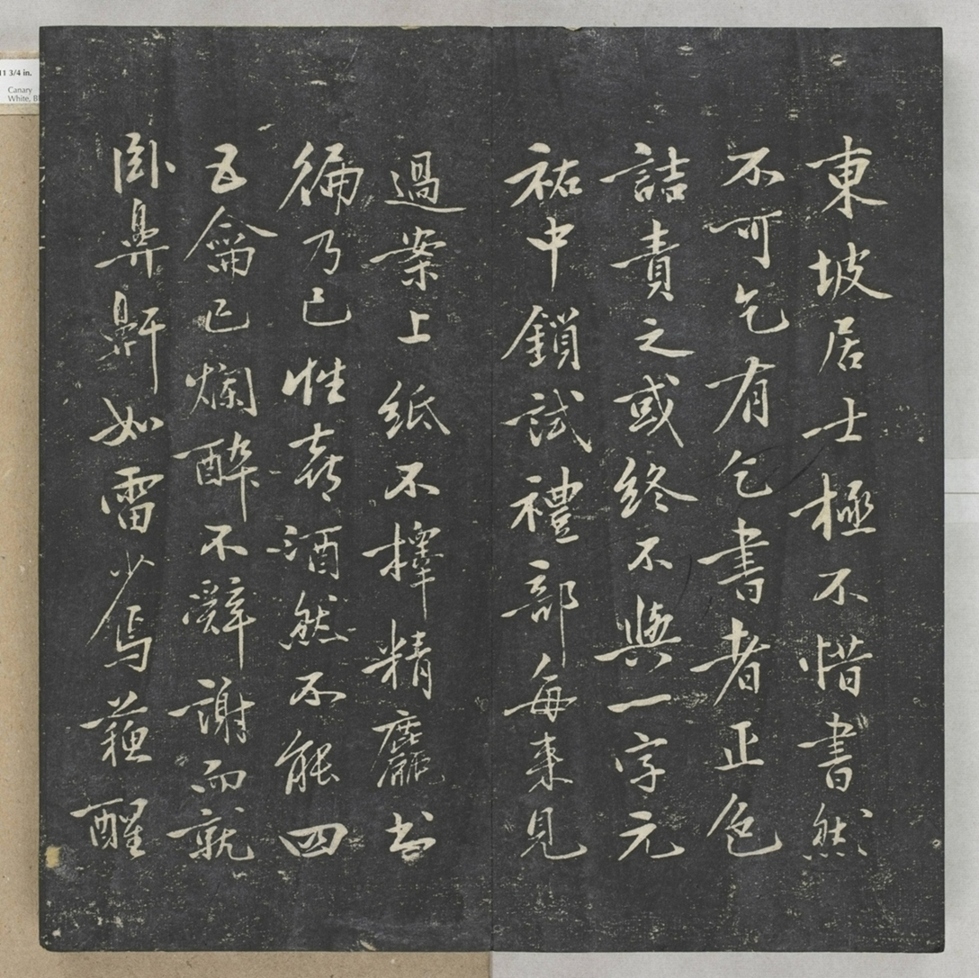 東坡居士極不惜書然
不可乞有乞書者正色
詰責之或終不與一字元
祐中鎖試禮部每來見
過案上紙不擇精麤书
徧乃已性喜酒然不能四
五龠已爛醉不辭謝而就
臥鼻鼾如雷少焉蘓醒
11 3/4 in.
Canary
White,